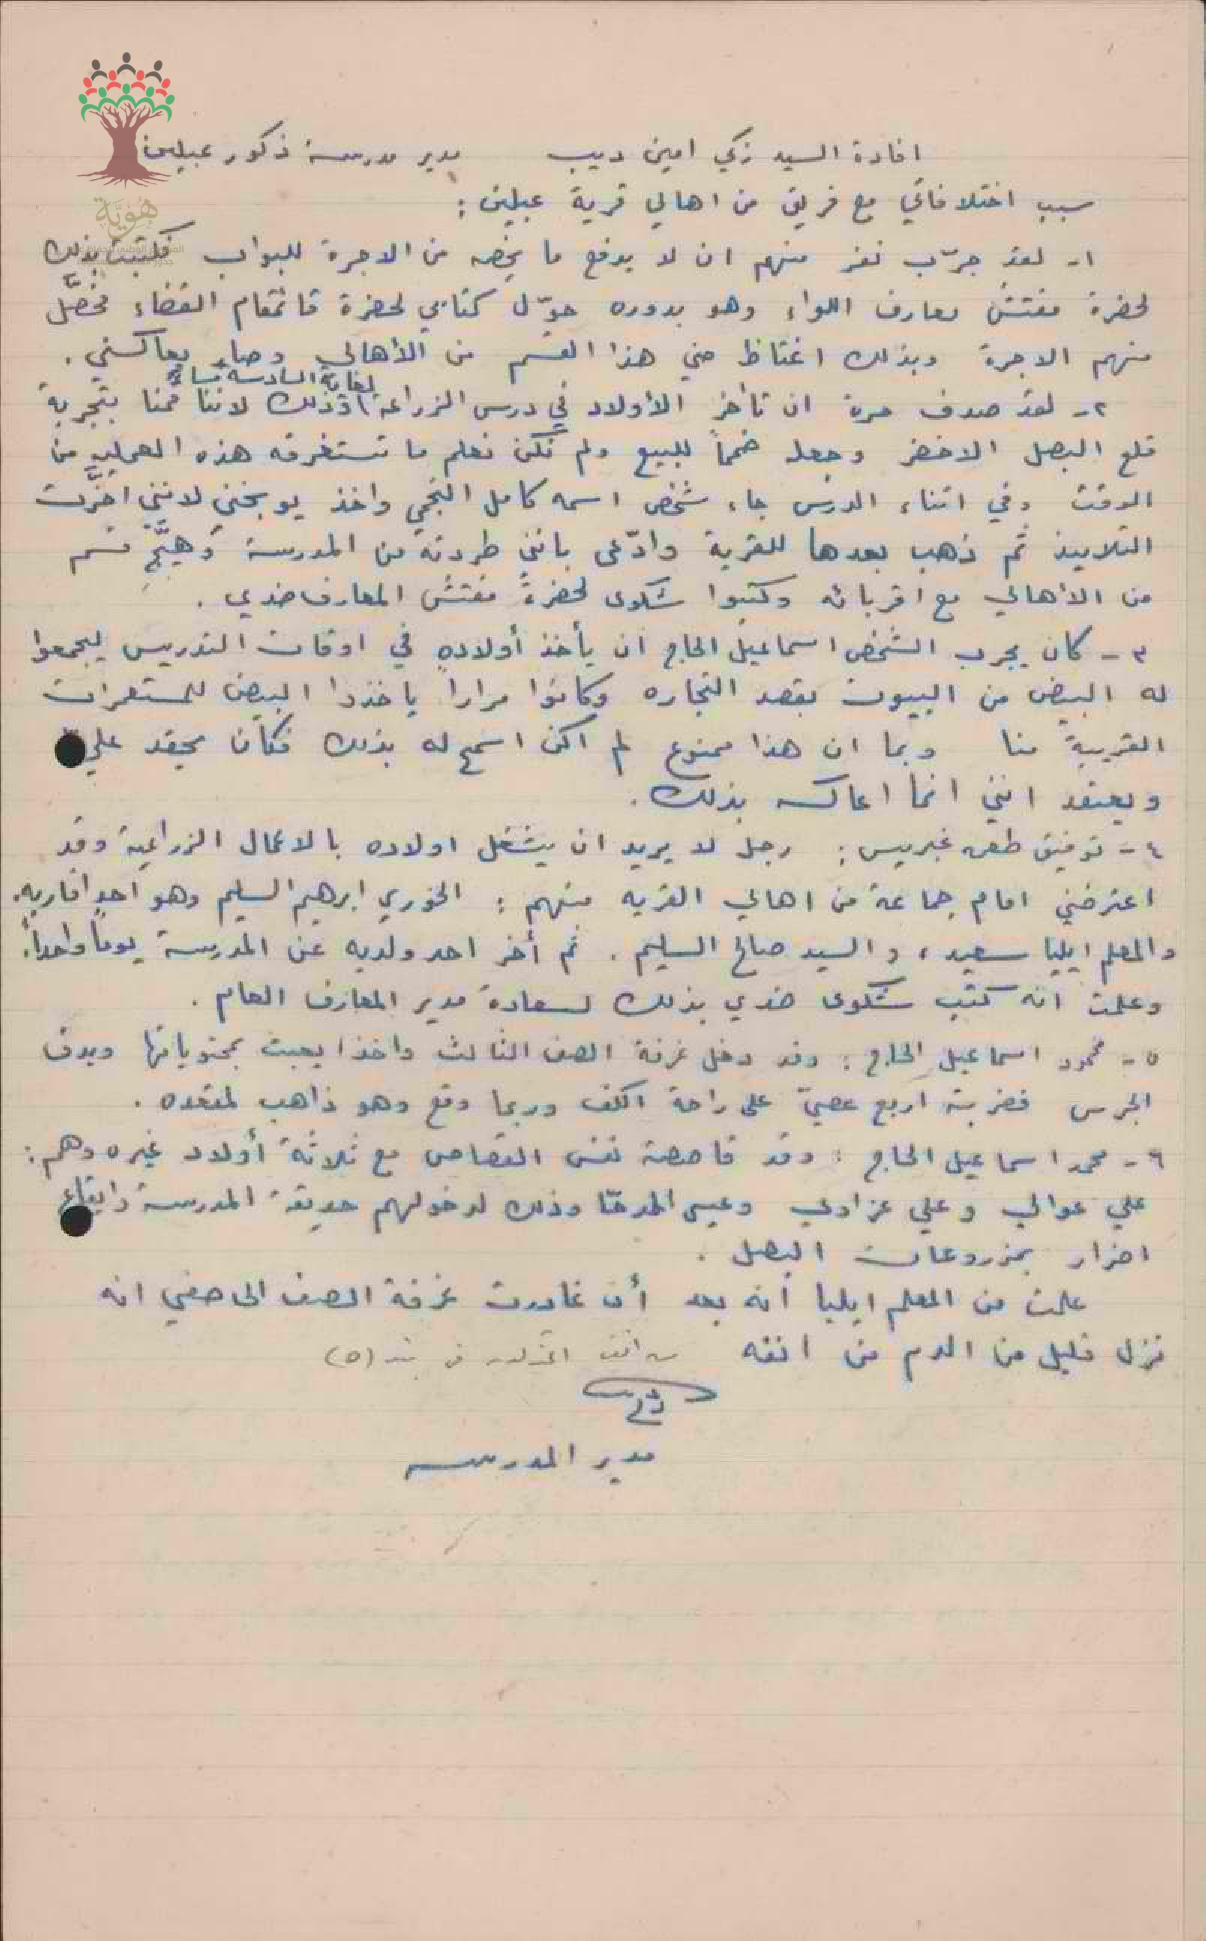 هوية
افادة السيد زكي امين ديب مدير مدرسة ذكور عبلين
سبب اختلافاتي مع فريق من اهالي قرية عبلين :
١- لقد جرّب نفر منهم ان لا يدفع ما يخصه من الاجرة للبواب فكتبت بذلك
لحضرة مفتش معارف اللواء وهو بدوره حوّل كتابي لحضرة قائمقام القضاء فحصَّل
منهم الاجرة وبذلك اغتاظ مني هذا القسم من الأهالي وصار يعاكسني .
لغاية السادسة مساءً
٢- لقد صدف مرة ان تأخر الأولاد في درس الزراعة وذلك لاننا قمنا بتجربة
قلع البصل الاخضر وجعله ضمماً للبيع ولم نكن نعلم ما تستغرقه هذه العملية من
الوقت وفي اثناء الدرس جاء شخص اسمه كامل النجمي واخذ يوبخني لانني اخّرت
التلاميذ ثم ذهب بعدها للقرية وادّعى بانني طردته من المدرسة وهيَّج قسم
من الأهالي مع اقربائه وكتبوا شكوى لحضرة مفتش المعارف ضدي .
٣- كان يجرب الشخص اسماعيل الحاج ان يأخذ أولاده في اوقات التدريس ليجمعوا
له البيض من البيوت بقصد التجاره وكانوا مراراً ياخذوا البيض للمستعمرات
القريبة منا وبما ان هذا ممنوع لم اكن اسمح له بذلك فكان يحقد علي
ويعتقد انني انما اعاكسه بذلك .
٤- توفيق طعمه غبريس : رجل لا يريد ان يشتغل اولاده بالاعمال الزراعية وقد
اعترضني امام جماعة من اهالي القريه منهم : الخوري ابرهيم السليم وهو احد اقاربه
والمعلم ايليا سعيد ، والسيد صالح السليم . ثم أخر احد ولديه عن المدرسة يوماً واحداً.
وعلمت انه كتب شكوى ضدي بذلك لسعادة مدير المعارف العام .
٥- محمود اسماعيل الحاج : وقد دخل غرفة الصف الثالث واخذ يعبث بمحتوياتها ويدق
الجرس فضربته اربع عصيّ على راحة الكف وربما وقع وهو ذاهب لمقعده .
٦- محمد اسماعيل الحاج : وقد قاصصته نفس القصاص مع ثلاثة أولاد غيره وهم :
علي عوالي وعلي عزاوي وعيسى المدحّا وذلك لدخولهم حديقة المدرسة وايقاع
اضرار بمزروعات البصل .
علمت من المعلم ايليا أنه بعد أن غادرت غرفة الصف الى صفي انه
نزل قليل من الدم من انفه (٥)
مدير المدرسه